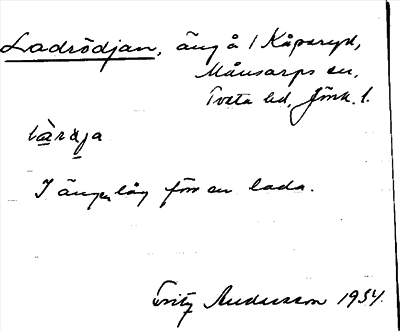 Ladrödjan, äng å 1 Kåparyd,
Månsarps sn,
Tveta hd, Jönk. l.
làræja
I ängen låg förr en lada.
Fritz Andersson 1934.